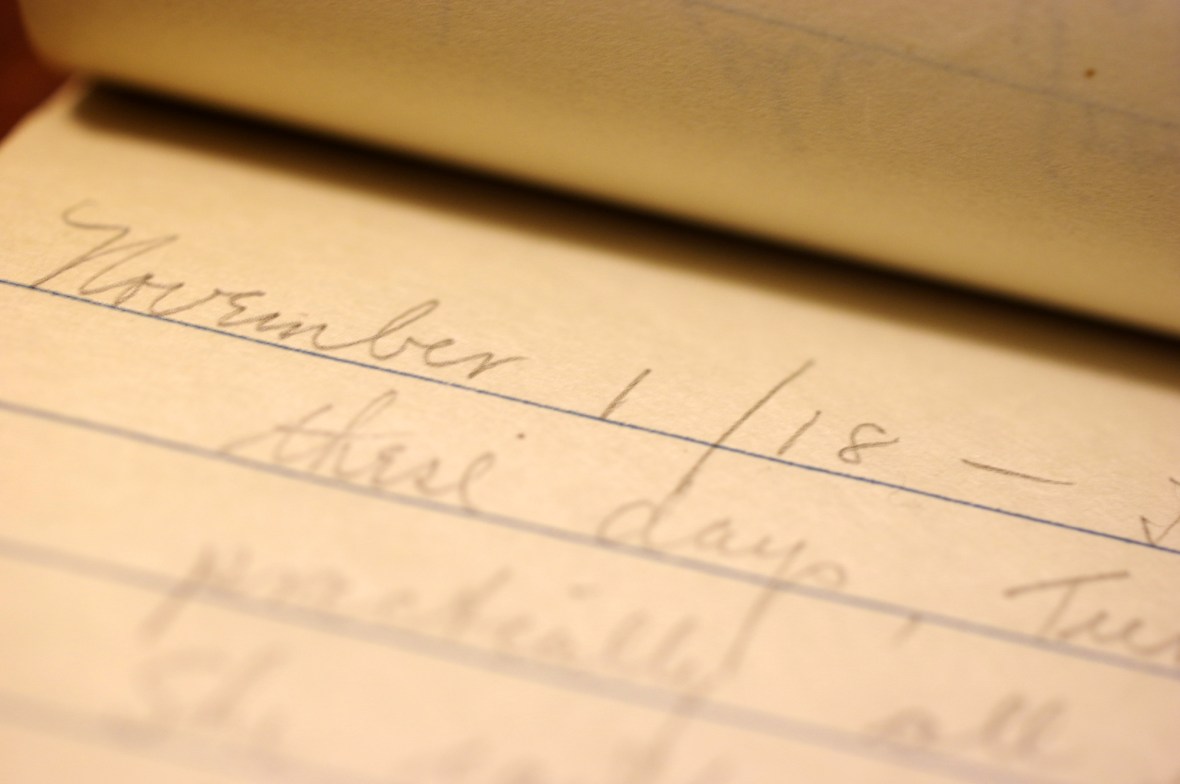 November 1/18 —
these days,
practically all